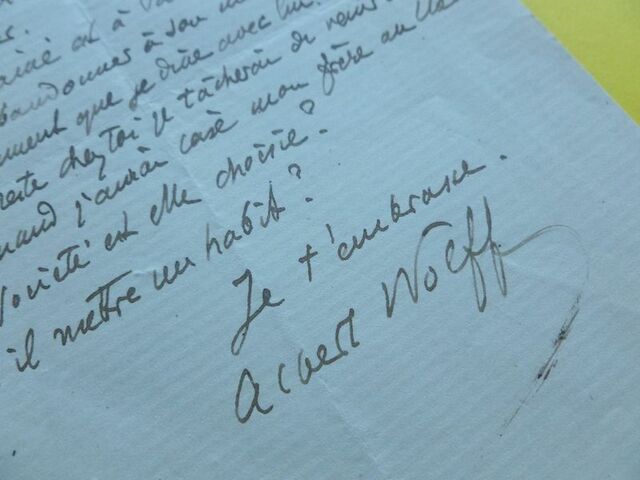 est à
abandonner à son
que je dîne avec lui.
reste chez toi je tâcherai de
quand j'aurai casé mon frère au
société est elle choisie?
il mettre un habit?
Je t'embrasse.
Albert Wolff